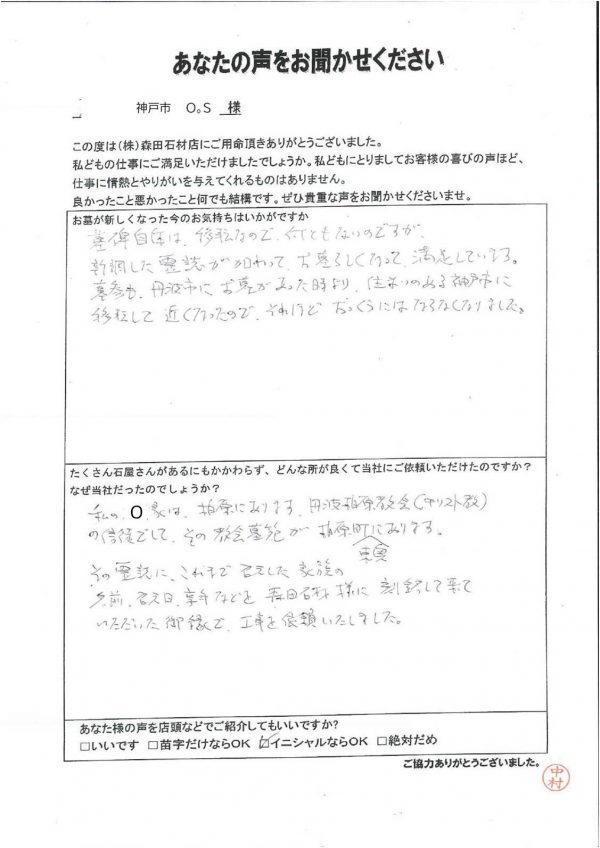 あなたの声をお聞かせください
神戸市 O。S 様
この度は(株)森田石材店にご用命頂きありがとうございました。
私どもの仕事にご満足いただけましたでしょうか。私どもにとりましてお客様の喜びの声ほど、
仕事に情熱とやりがいを与えてくれるものはありません。
良かったこと悪かったこと何でも結構です。ぜひ貴重な声をお聞かせくださいませ。
お墓が新しくなった今のお気持ちはいかがですか
墓碑自体は、移転なので、何ともないのですが、
新調した霊誌が加わって、お墓らしくなって満足しています。
墓参も、丹波市にお墓があった時より、住まいのある神戸市に
移転して近くなったので、それほどおっくうにはならなくなりました。
たくさん石屋さんがあるにもかかわらず、どんな所が良くて当社にご依頼いただけたのですか？
なぜ当社だったのでしょうか？
私の、O家は、柏原にあります、丹波柏原教会(キリスト教)
の信徒でして、その教会墓地が柏原町にあります。
東奥
その霊誌に、これまで召天した家族の
名前、召天日、享年などを森田石材様に彫刻して来て
いただいた御縁で、工事を依頼いたしました。
あなた様の声を店頭などでご紹介してもいいですか？
□いいです □苗字だけならOK ☑イニシャルならOK □絶対だめ
ご協力ありがとうございました。
中村